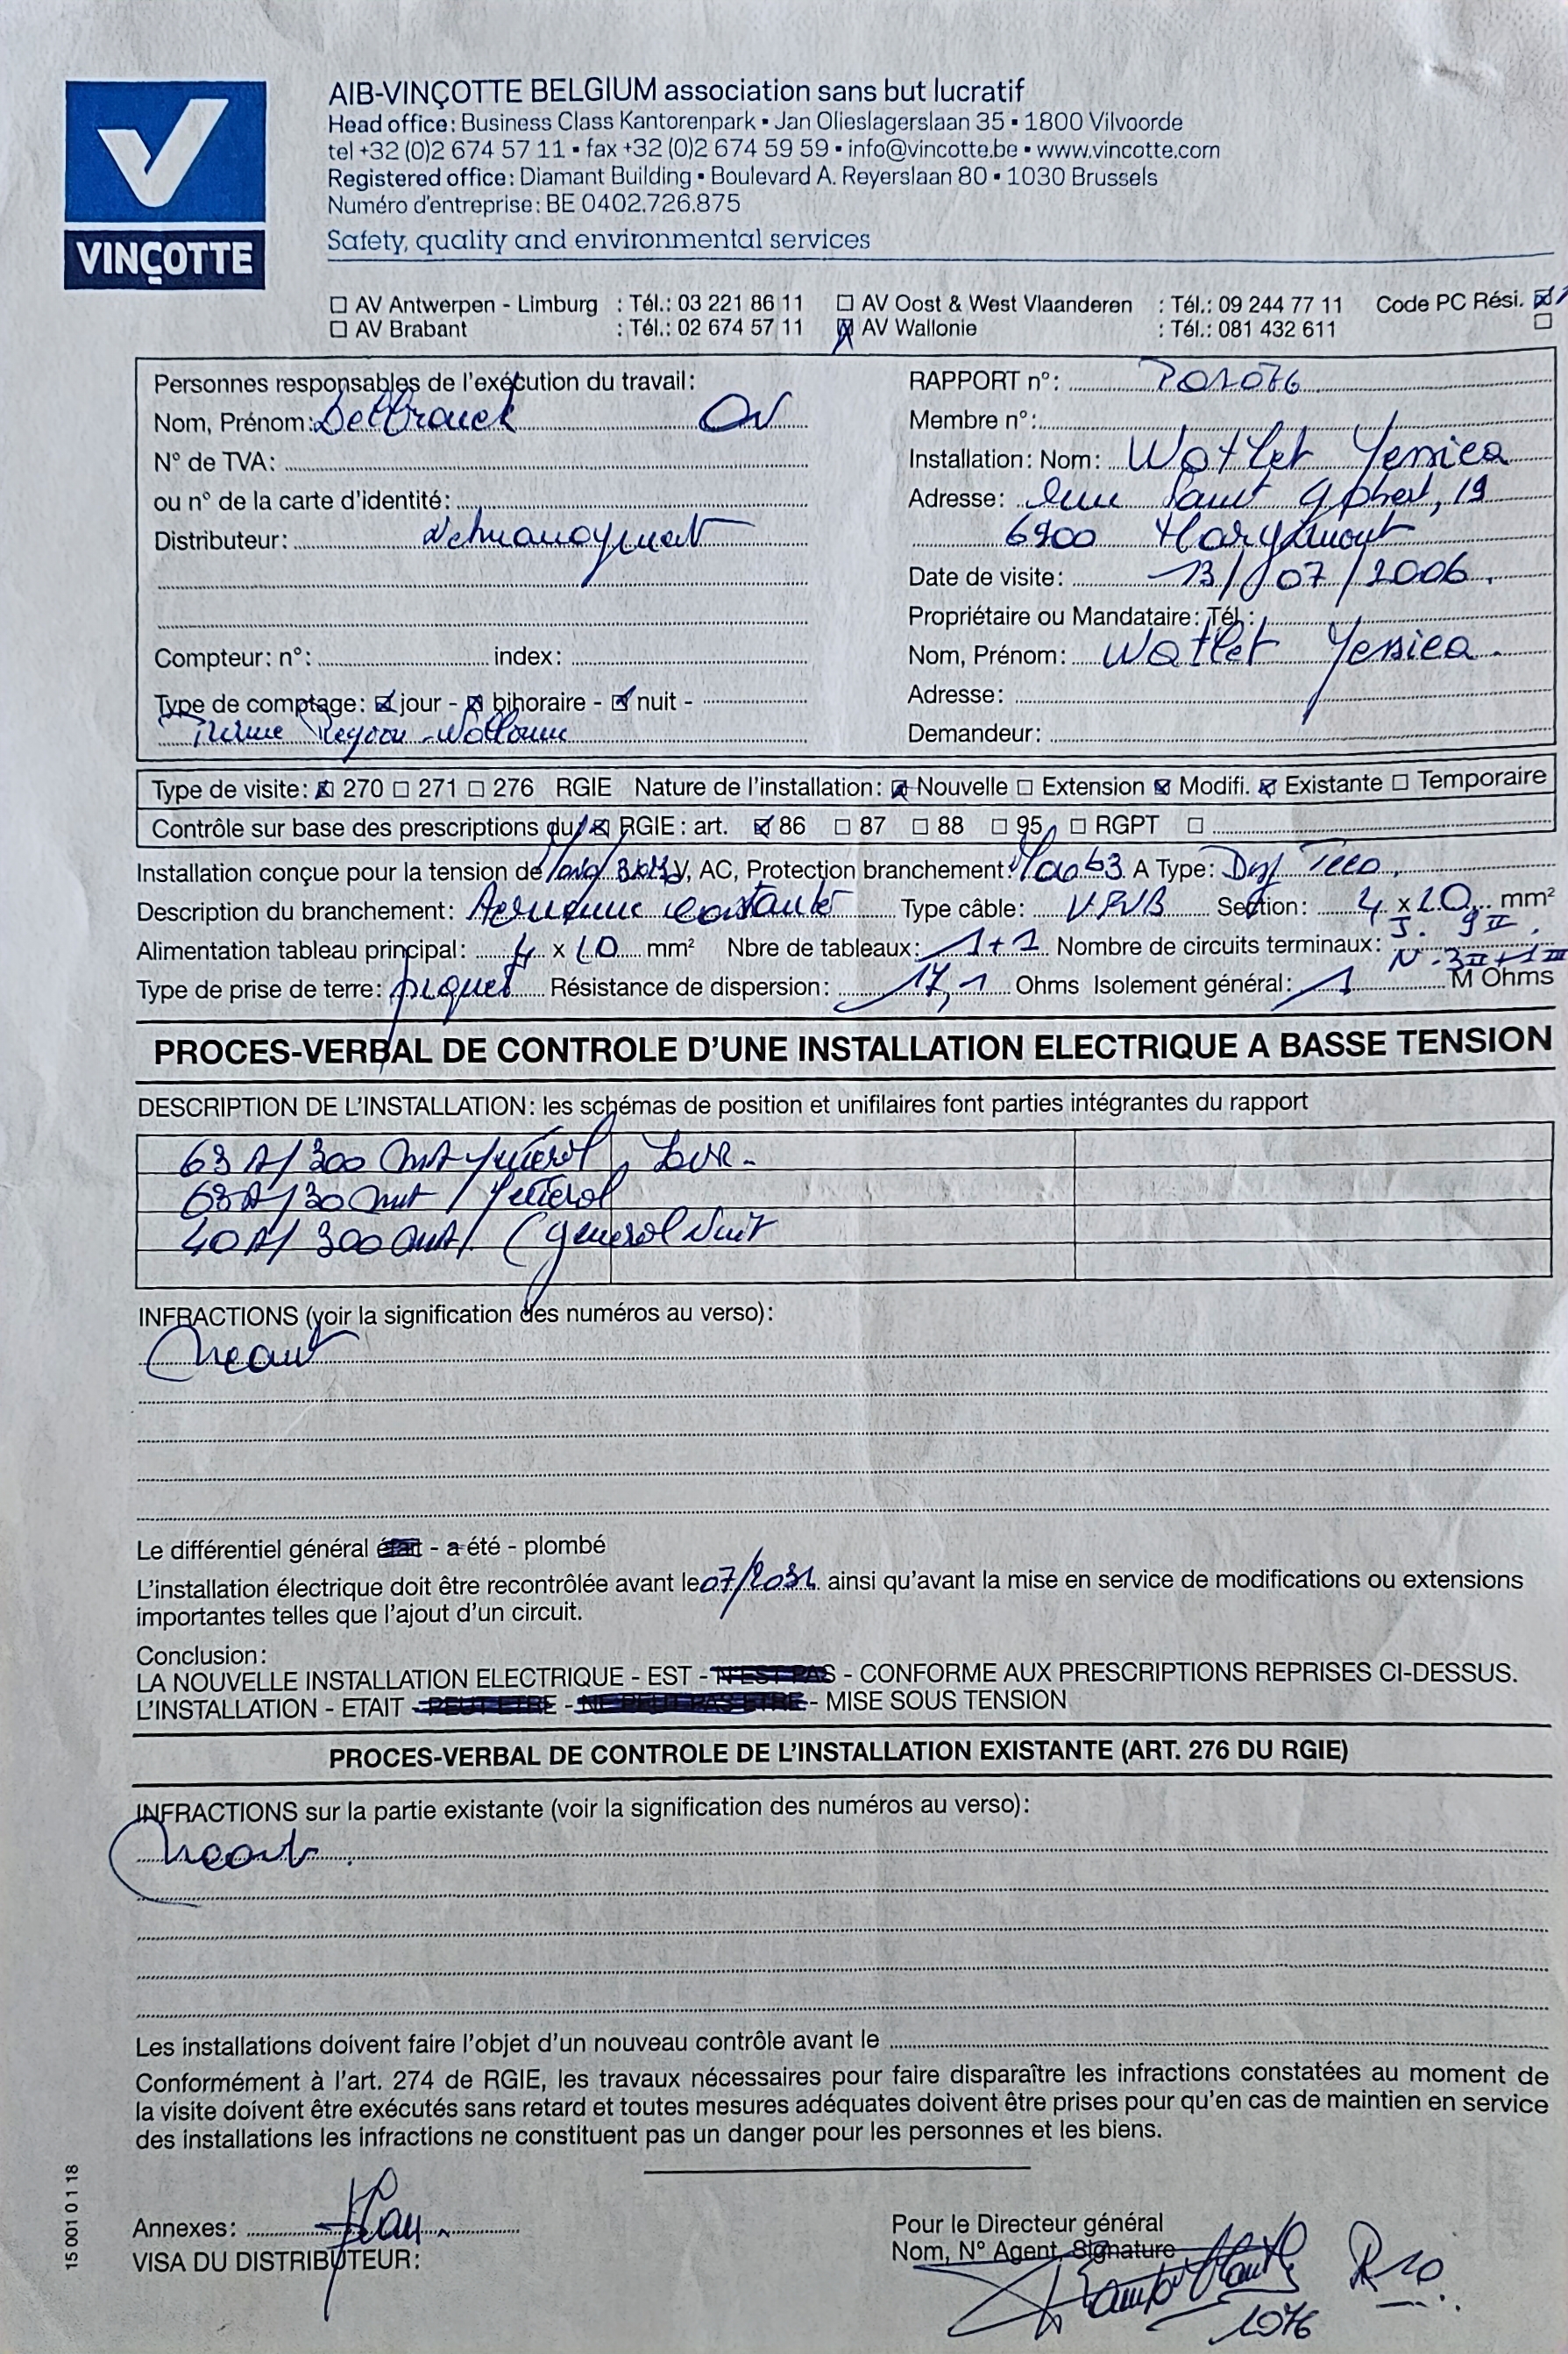 AIB-VINÇOTTE BELGIUM association sans but lucratif
Head office: Business Class Kantorenpark ▪ Jan Olieslagerslaan 35 ▪ 1800 Vilvoorde
tel +32 (0)2 674 57 11 ▪ fax +32 (0)2 674 59 59 ▪ info@vincotte.be ▪ www.vincotte.com
Registered office: Diamant Building ▪ Boulevard A. Reyerslaan 80 ▪ 1030 Brussels
Numéro d'entreprise: BE 0402.726.875
Safety, quality and environmental services
VINÇOTTE
AV Antwerpen - Limburg : Tél.: 03 221 86 11 AV Oost & West Vlaanderen : Tél.: 09 244 77 11 Code PC Rési.
AV Brabant : Tél.: 02 674 57 11 AV Wallonie : Tél.: 081 432 611
Personnes responsables de l'exécution du travail:
Nom, Prénom: Delbrouck
N° de TVA:
ou n° de la carte d'identité:
Distributeur:
Compteur: n°: index:
Type de comptage: jour - bihoraire - nuit -
Prime Région Wallonne
RAPPORT n°: P01076
Membre n°:
Installation: Nom: Watlet Yessica
Adresse: Saint 19
6900
Date de visite: 13/07/2006
Propriétaire ou Mandataire: Tél.:
Nom, Prénom: Watlet Yessica
Adresse:
Demandeur:
Type de visite: 270 271 276 RGIE Nature de l'installation: Nouvelle Extension Modifi. Existante Temporaire
Contrôle sur base des prescriptions du RGIE: art. 86 87 88 95 RGPT
Installation conçue pour la tension de V, AC, Protection branchement: 63 A Type:
Description du branchement: Type câble: VFVB Section: 4 x 10 mm²
Alimentation tableau principal: 4 x 10 mm² Nbre de tableaux: 1+1 Nombre de circuits terminaux: J. 9 II
N. 3 II + 1 III
Type de prise de terre: piquet Résistance de dispersion: 17,1 Ohms Isolement général: 1 M Ohms
PROCES-VERBAL DE CONTROLE D'UNE INSTALLATION ELECTRIQUE A BASSE TENSION
DESCRIPTION DE L'INSTALLATION: les schémas de position et unifilaires font parties intégrantes du rapport
63 A/300 mA général Jour.
63 A/30 mA / général
40 A/ 300 mA/ (général Nuit
INFRACTIONS (voir la signification des numéros au verso):
Néant
Le différentiel général était - a été - plombé
L'installation électrique doit être recontrôlée avant le 07/2031 ainsi qu'avant la mise en service de modifications ou extensions
importantes telles que l'ajout d'un circuit.
Conclusion:
LA NOUVELLE INSTALLATION ELECTRIQUE - EST - N'EST PAS - CONFORME AUX PRESCRIPTIONS REPRISES CI-DESSUS.
L'INSTALLATION - ETAIT - PEUT ETRE - NE PEUT PAS ETRE - MISE SOUS TENSION
PROCES-VERBAL DE CONTROLE DE L'INSTALLATION EXISTANTE (ART. 276 DU RGIE)
INFRACTIONS sur la partie existante (voir la signification des numéros au verso):
Néant.
Les installations doivent faire l'objet d'un nouveau contrôle avant le
Conformément à l'art. 274 de RGIE, les travaux nécessaires pour faire disparaître les infractions constatées au moment de
la visite doivent être exécutés sans retard et toutes mesures adéquates doivent être prises pour qu'en cas de maintien en service
des installations les infractions ne constituent pas un danger pour les personnes et les biens.
15 001 0 1 18
Annexes:
VISA DU DISTRIBUTEUR:
Pour le Directeur général
Nom, N° Agent, Signature
1076